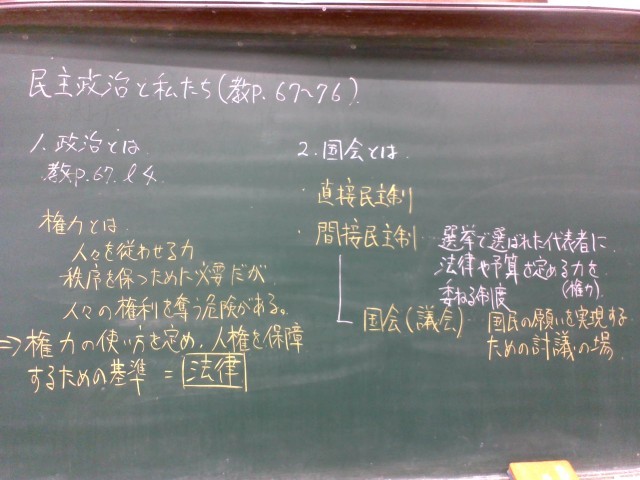 民主政治と私たち(教P.67~76)
1.政治とは
教P.67.l4.
権力とは、
人々を従わせる力
秩序を保つために必要だが
人々の権利を奪う危険がある。
⇒権力の使い方を定め、人権を保障
するための基準=法律
2.国会とは
・直接民主制
・間接民主制
選挙で選ばれた代表者に
法律や予算を定める力を
(権力)
委ねる制度
国会(議会)
国民の願いを実現する
ための討議の場